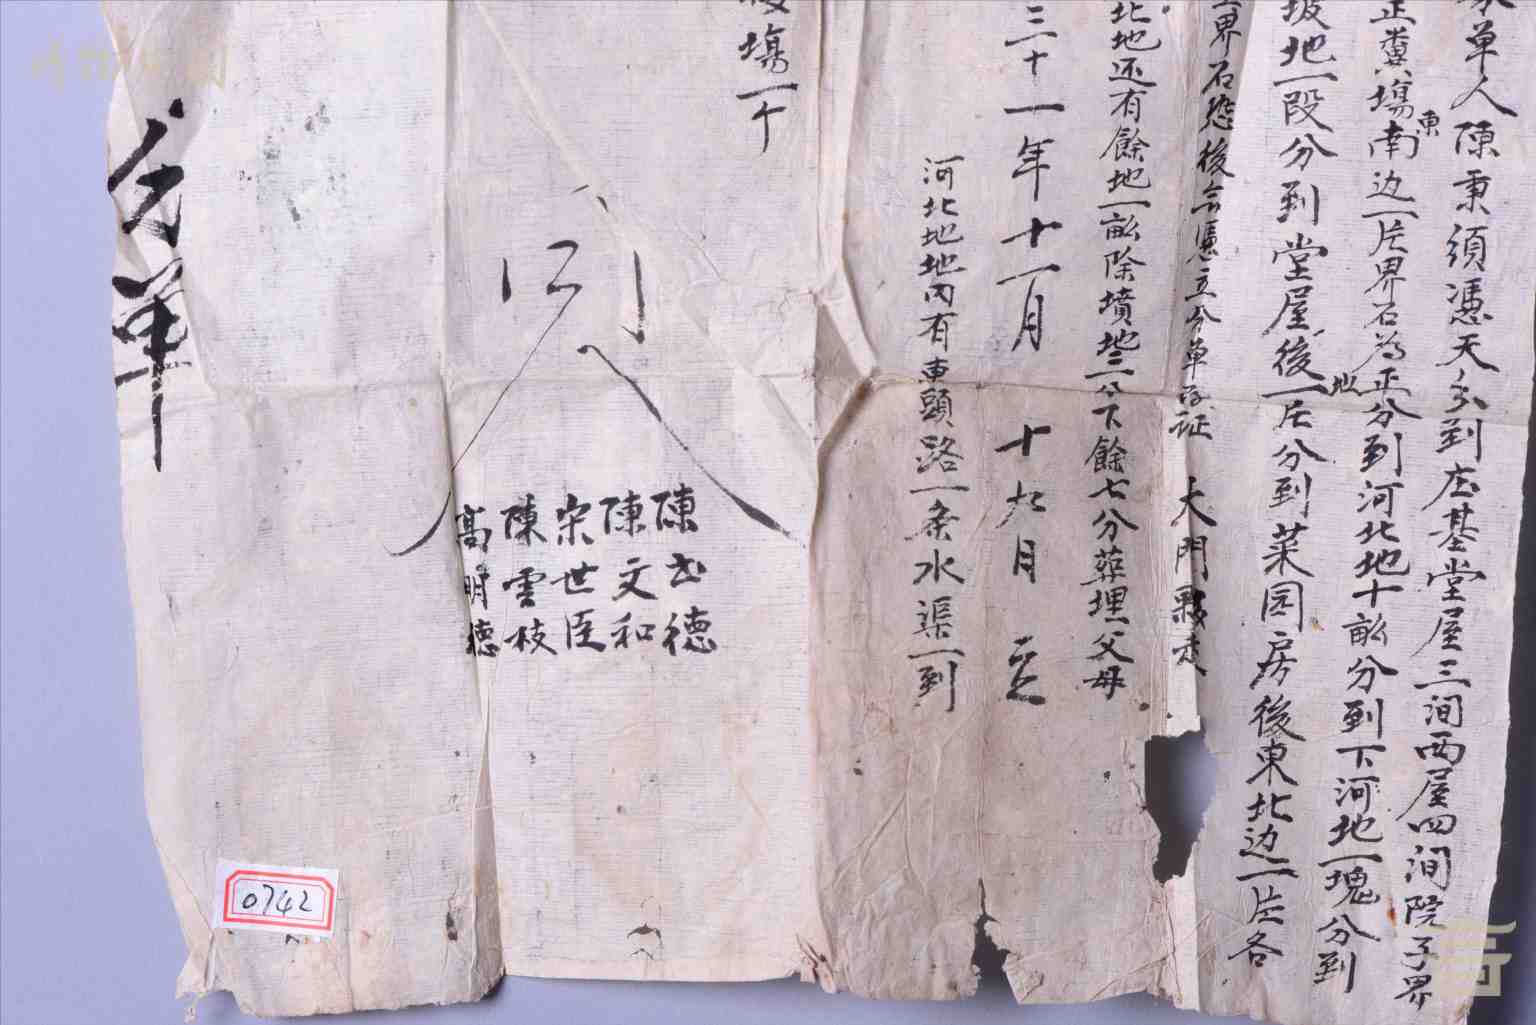 單人陳秉須憑天分到庄基堂屋三间西屋四间院子界
正糞塲東南边一片界石為正分到河北地十畝分到下河地一塊分到
坡地一段分到堂屋後地一庄分到菜园房後東北边一片各
界石恐後無憑立分單存证 大門夥走
北地还有餘地一畝除墳地三分下餘七分葬埋父母
三十一年十一月 十九日 立
河北地地内有東頭路一条水渠一到
塲一个
陳書德
陳文和
宋世臣
陳雲枝
高明德
分單
0742